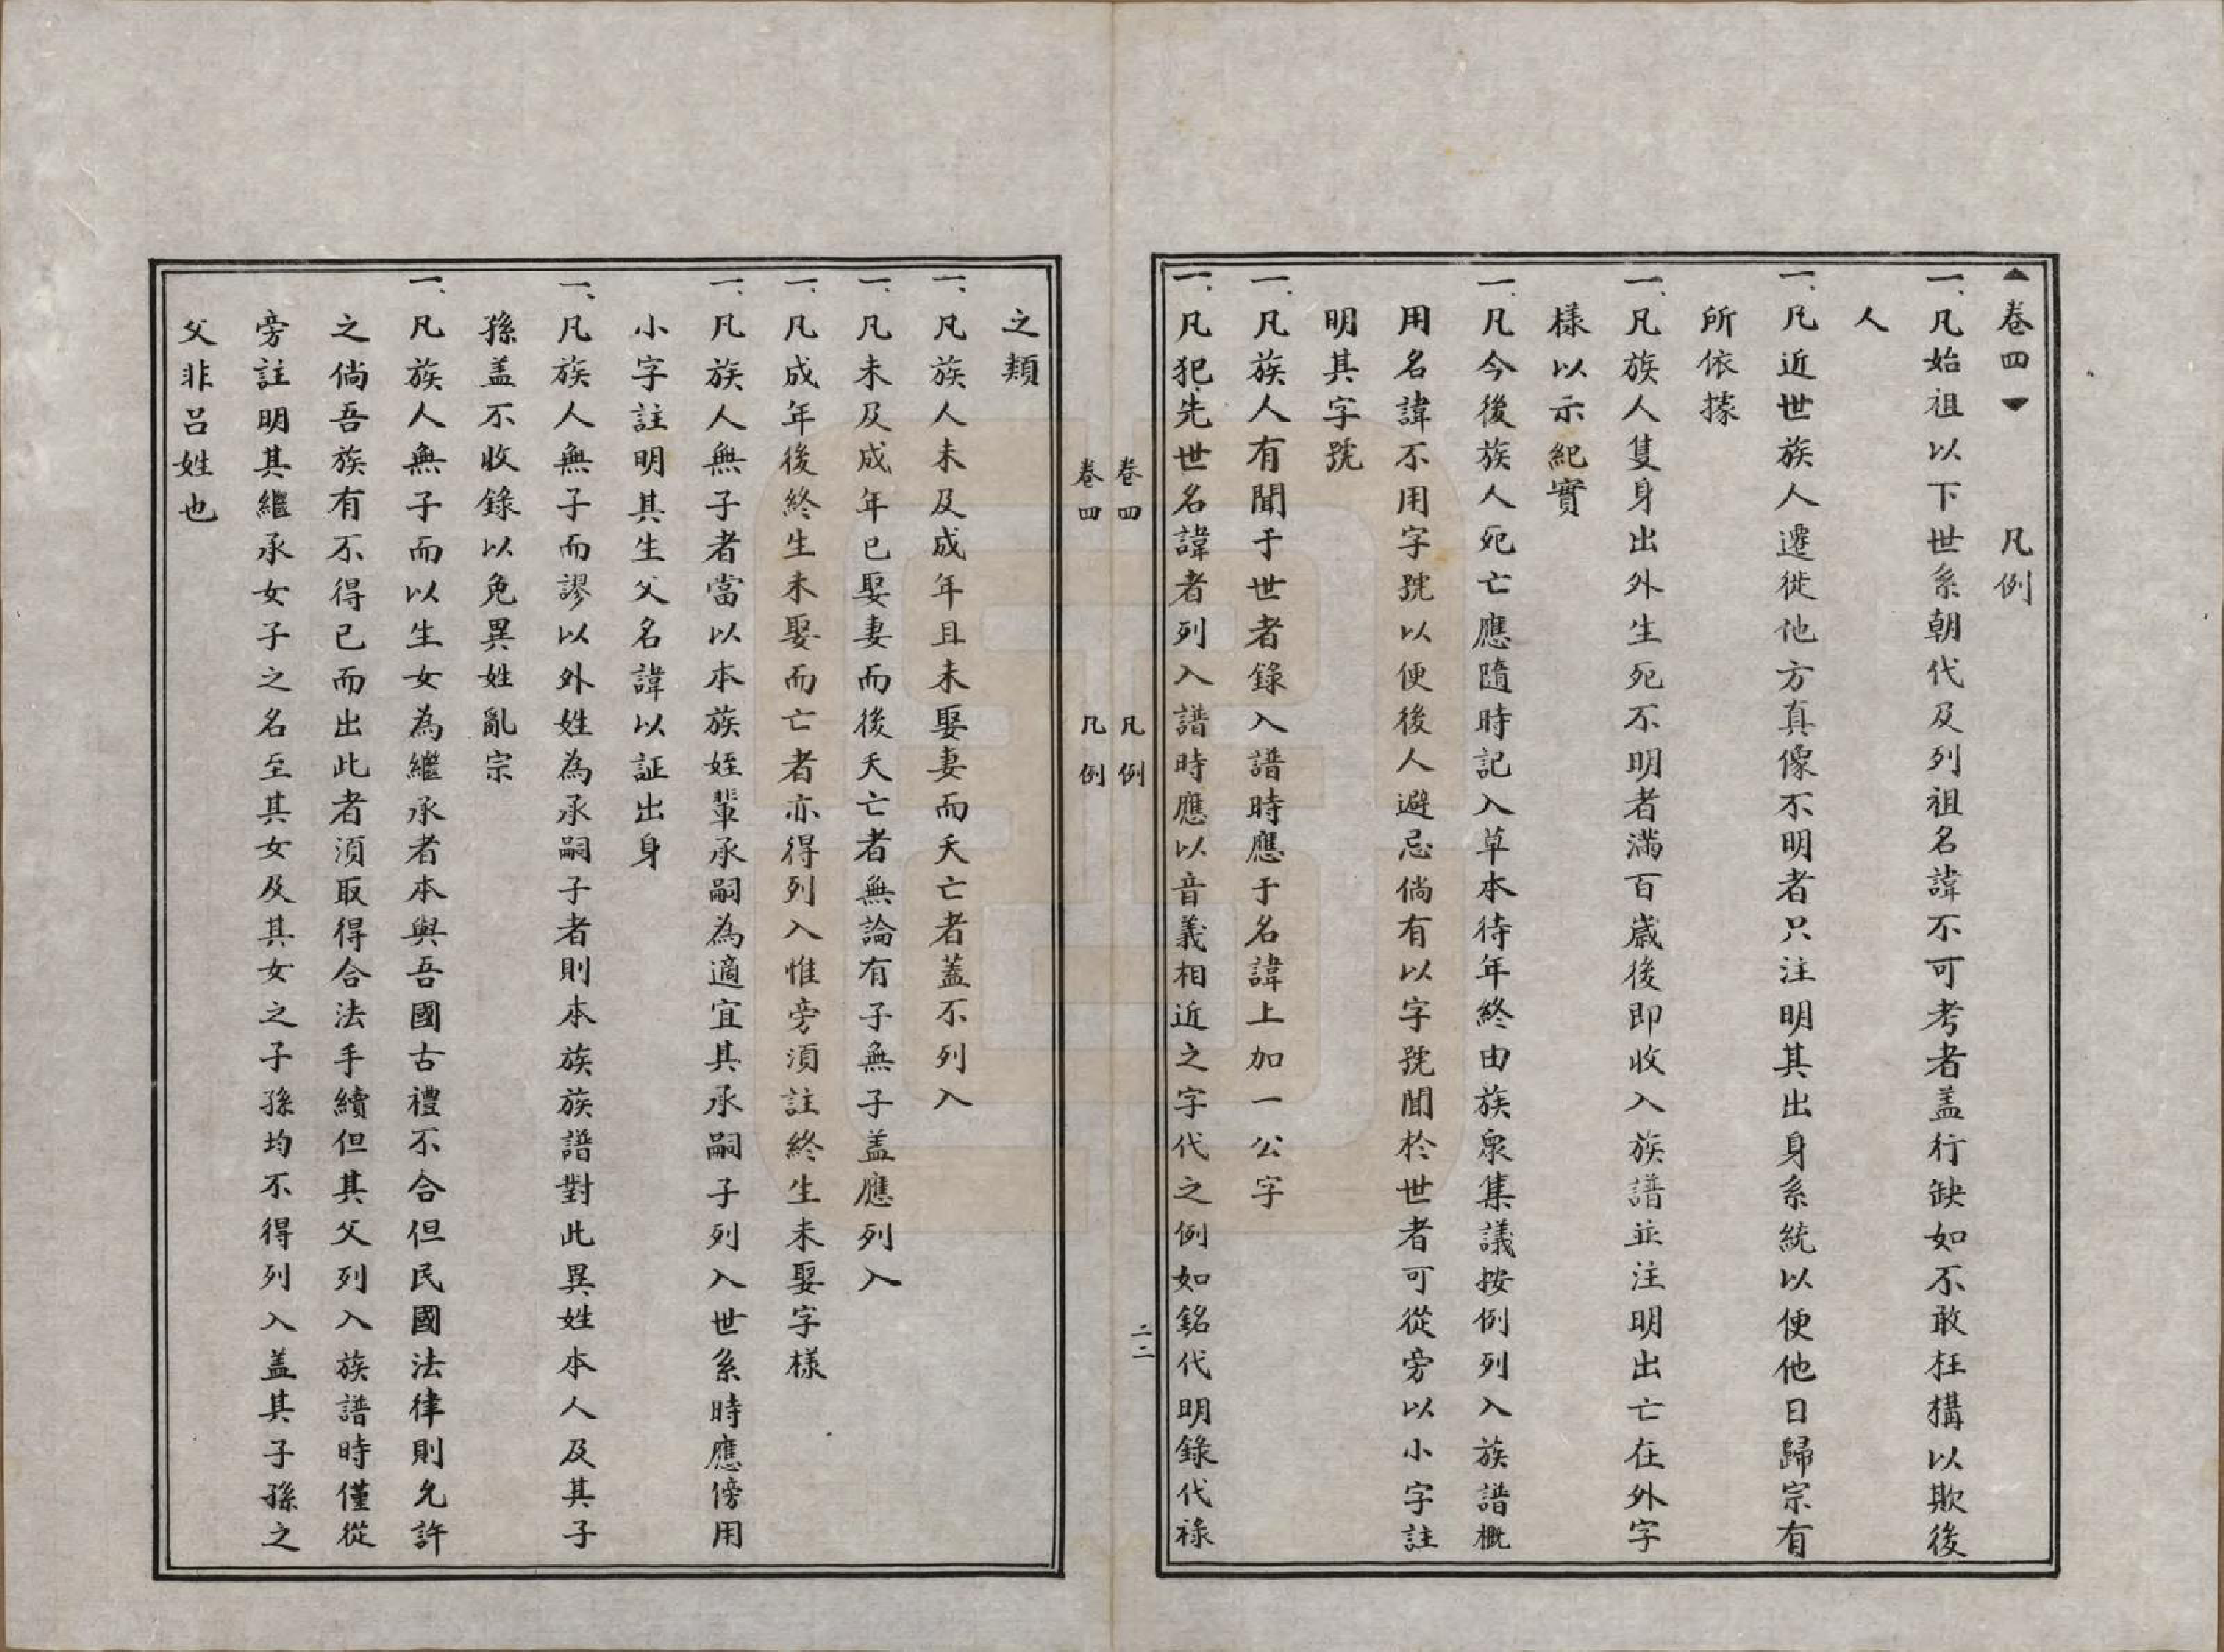 ▲卷四▼　凡例
一、凡始祖以下世系朝代及列祖名諱不可考者盖行缺如不敢枉構以欺後
人
一、凡近世族人遷徙他方真像不明者只注明其出身系統以便他日歸宗有
所依據
一、凡族人隻身出外生死不明者满百歲後即收入族譜並注明出亡在外字
樣以示紀實
一、凡今後族人死亡應隨時記入草本待年終由族衆集議按例列入族譜概
用名諱不用字號以便後人避忌倘有以字號聞於世者可從旁以小字註
明其字號
一、凡族人有聞于世者錄入譜時應于名諱上加一公字
一、凡犯先世名諱者列入譜時應以音義相近之字代之例如銘代明錄代祿
卷四　凡例　二二
卷四　凡例
之類
一、凡族人未及成年且未娶妻而夭亡者盖不列入
一、凡未及成年已娶妻而後夭亡者無論有子無子盖應列入
一、凡成年後終生未娶而亡者亦得列入惟旁須註終生未娶字樣
一、凡族人無子者當以本族姪輩承嗣為適宜其承嗣子列入世系時應傍用
小字註明其生父名諱以証出身
一、凡族人無子而謬以外姓為承嗣子者則本族族譜對此異姓本人及其子
孫盖不收錄以免異姓亂宗
一、凡族人無子而以生女為繼承者本與吾國古禮不合但民國法律則允許
之倘吾族有不得已而出此者須取得合法手續但其父列入族譜時僅從
旁註明其繼承女子之名至其女及其女之子孫均不得列入盖其子孫之
父非呂姓也